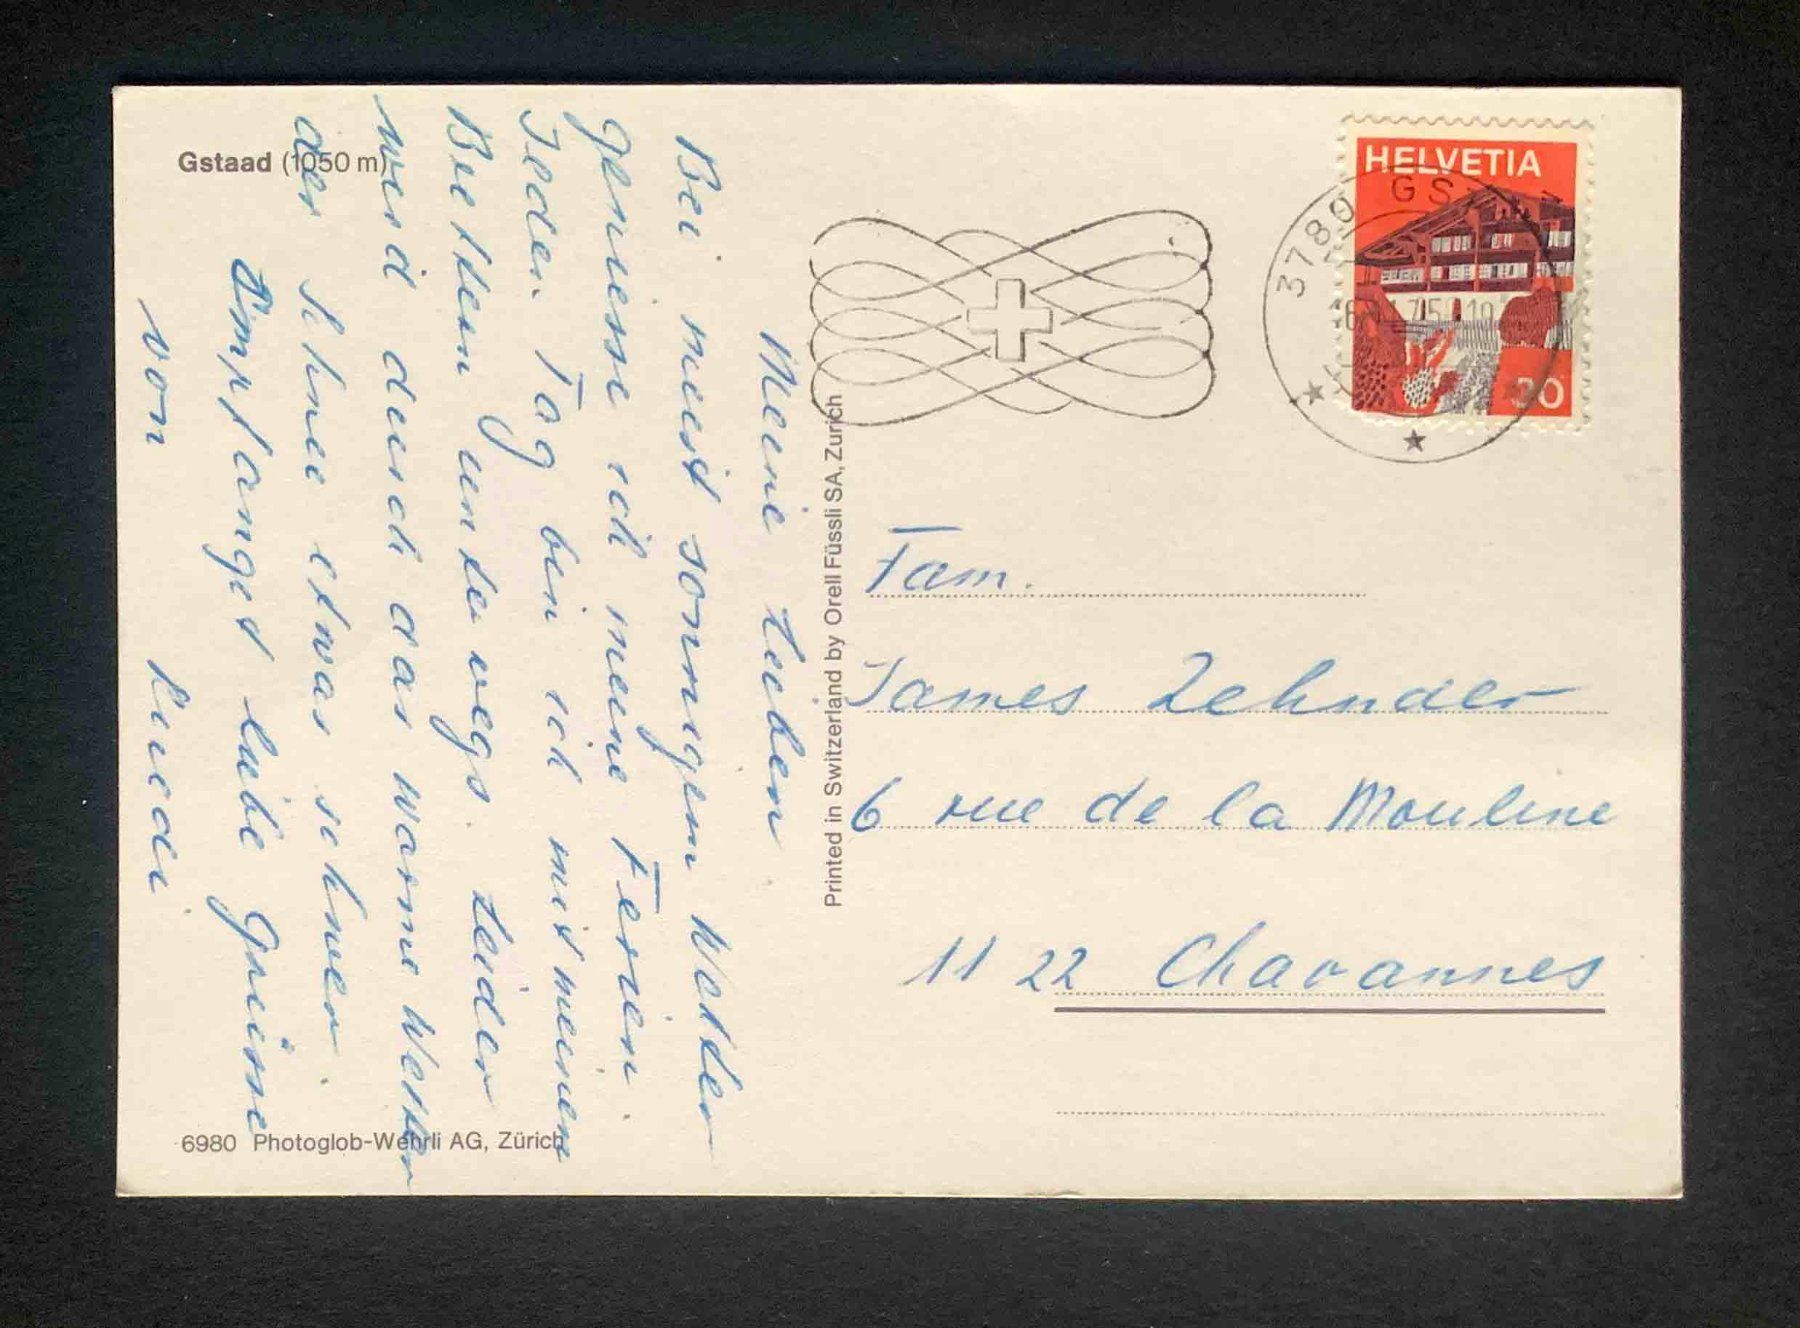 Gstaad (1050 m)
Meine Lieben
Bei meist sonnigem Wetter
geniesse ich meine Ferien.
Jeden Tag bin ich mit meinen
Brettern unterwegs. Leider
wird durch das warme Wetter
der Schnee etwas schwer.
Empfanget liebe Grüsse
von Ruedi
6980 Photoglob-Wehrli AG, Zürich
Printed in Switzerland by Orell Füssli SA, Zurich
HELVETIA
3780 GS
30
Fam.
James Zehnder
6 rue de la Mouline
1122 Chavannes